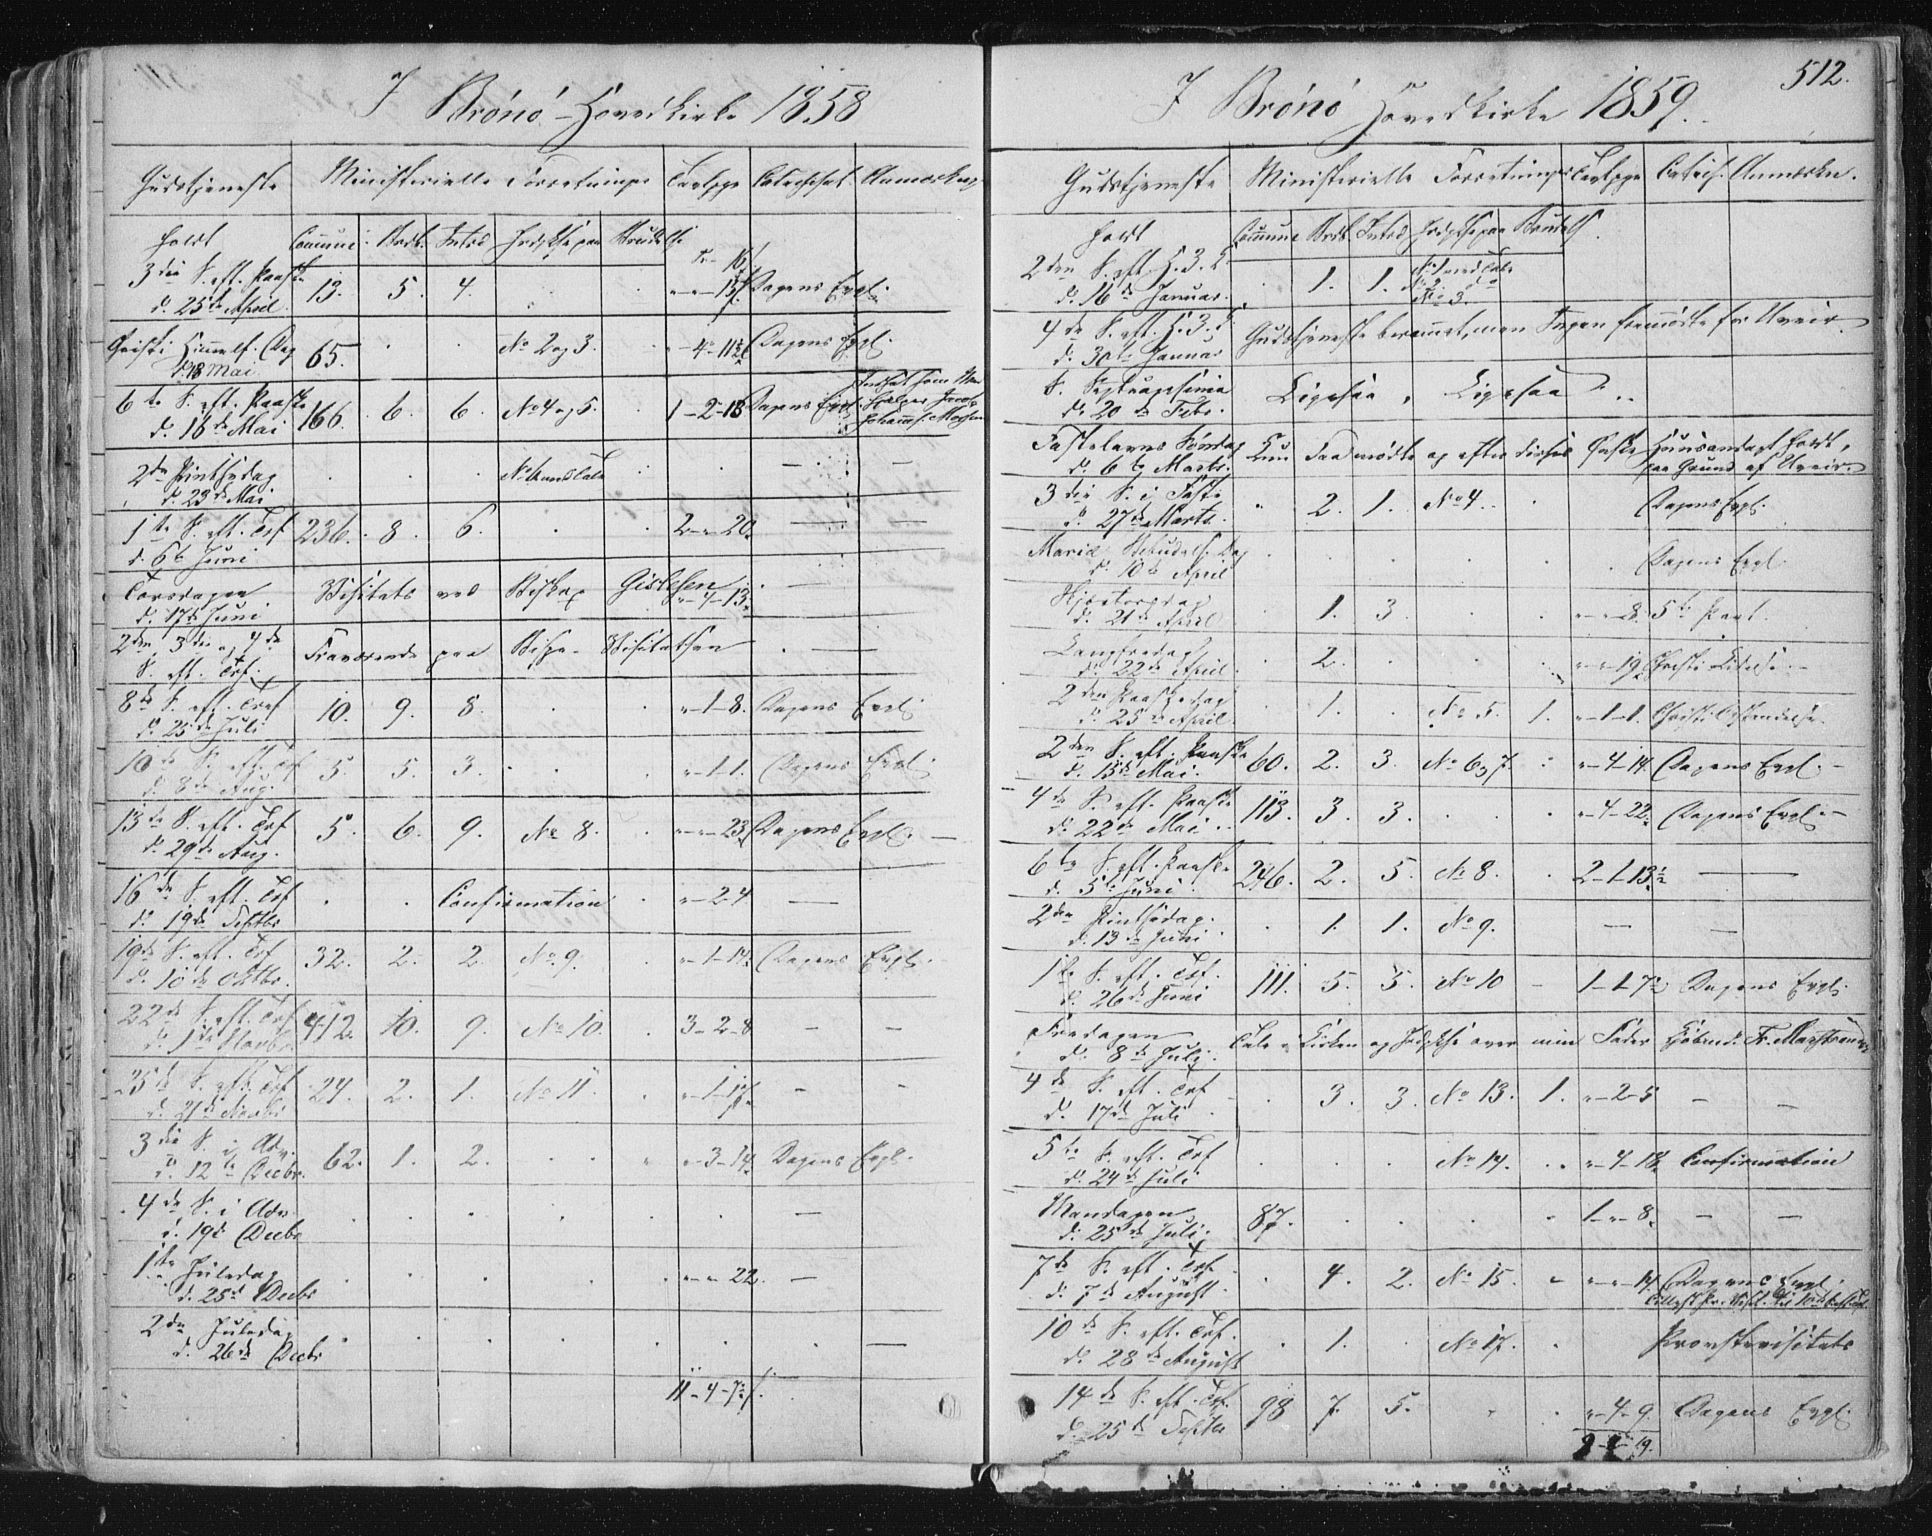 I Brönö Hovedkirke 1858
Gudstjeneste Ministerielle Forretninger Tavlpge Catechiset Anmærkng
holdt Commun. Brdb. Introd Jordpkstpaa Brudevi.
3die S. eft. Paaske d. 25de April 13. 5. 4. Dagens Evgl.
Christi Himmelf. Dag d. 13 Mai 65. No 2 og 3. "-4-11½ Dagens Evgl.
6te S. eft. Paaske d. 16de Mai 166. 6. 6. No 4 og 5. 1-2-18 Dagens Evgl.
2den Pintsedag d. 23de Mai — —
1ste S. eft. Trf d. 6te Juni 236. 8. 6. 2-"-20. — —
Torsdagen d. 17de Juni Visitats ved Biskop Gislesen "-4-13. —
2den, 3die og 4de S. eft. Trf. Fraværende paa Bispe-Visitatsen . —
8de S. eft. Tref d. 25de Juli 10. 9. 8. "-1-8. Dagens Evgl.
10de S. eft. Trf d. 8de Aug. 5. 5. 3. "-1-1. Dagens Evgl.
13de S. eft. Trf d. 29de Aug. 5. 6. 9. No 8. "-"-23 Dagens Evgl. —
16de S. eft. Trf d. 19de Septbr Confirmation "-2-4 —
19de S. eft. Trf d. 10de Oktbr. 32. 2. 2. No. 9. "-1-14. Dagens Evgl.
22de S. eft. Trf d. 1ste Novbr 412. 10. 9. No 10. 3-2-8 — —
25de S. eft. Trf d. 21de Novbr 24. 2. 1. No 11. — —
3die S. i Adv. d. 12te Decbr. 62. 1. 2. "-3-14. Dagens Evgl.
4de S. i Adv. d. 19de Decbr —
1ste Juledag d. 25de Decbr "-"-22. —
2den Juledag d. 26de Decbr —
11-4-7½ s.
512.
I Brönö Hovedkirke 1859.
Gudstjeneste Ministerielle Forretninger Tavlpge Catech. Anmærkn.
holdt Commun Brdb. Introd Jordpkstpaa Brudevi.
2den S. eft. H. 3. K. d. 16de Januar. 1. 1.
4de S. eft. H. 3. K. d. 30te Januar Gudstjeneste berammet, men Ingen fremmødte for Uveir.
S. Septuagesima d. 20de Febr. Ligesaa, Ligesaa
Fastelavns Søndag d. 6te Marts. Kun Faa mødte og efter disses Ønske Huusandagt holdt, paa Grund af Uveir.
3die S. i Faste d. 27de Marts. 2. 1. No 4. Dagens Evgl.
Mariæ Bebudels. Dag d. 10de April Dagens Evgl.
Skjærtorsdag d. 21de April 1. 3. "-"-8. 5te Part.
Langfredag d. 22de April 2. "-"-19. Christi Lidelse.
2den Paaskedag d. 25de April 1. No 5. 1. "-1-1. Christi Opstandelse.
2den S. eft. Paaske d. 15de Mai. 60. 2. 3. No 6 og 7. "-4-14. Dagens Evgl. —
4de S. eft. Paaske d. 22de Mai 113. 3. 3. "-4-22. Dagens Evgl. —
6te S. eft. Paaske d. 5te Juni 246. 2. 5. No 8. 2-1-13½ —
2den Pintsedag. d. 13de Juni 1. 1. No 9. — —
1ste S. eft. Trf. d. 26de Juni 111. 5. 5. No 10 1-1-7½ Dagens Evgl.
Fredagen d. 8de Juli Tale i Kirken og Jordpkst over min Fader Kjøbmd. Fr. Marstrand
4de S. eft. Trf d. 17de Juli 3. 3. No 13. 1. "-2-5 — —
5te S. eft. Trf d. 24de Juli No 14. "-4-18. Confirmation
Mandagen d. 25de Juli. 87. 1-"-8. — —
7de S. eft. Trf. d. 7de August. 4. 2. No 15. "-"-14. Dagens Evgl.
10de S. eft. Trf. d. 28de August 1. No 17. Provstevisitats
14de S. eft. Trf. d. 25de Septbr 98 7. 5. "-4-9. Dagens Evgl.